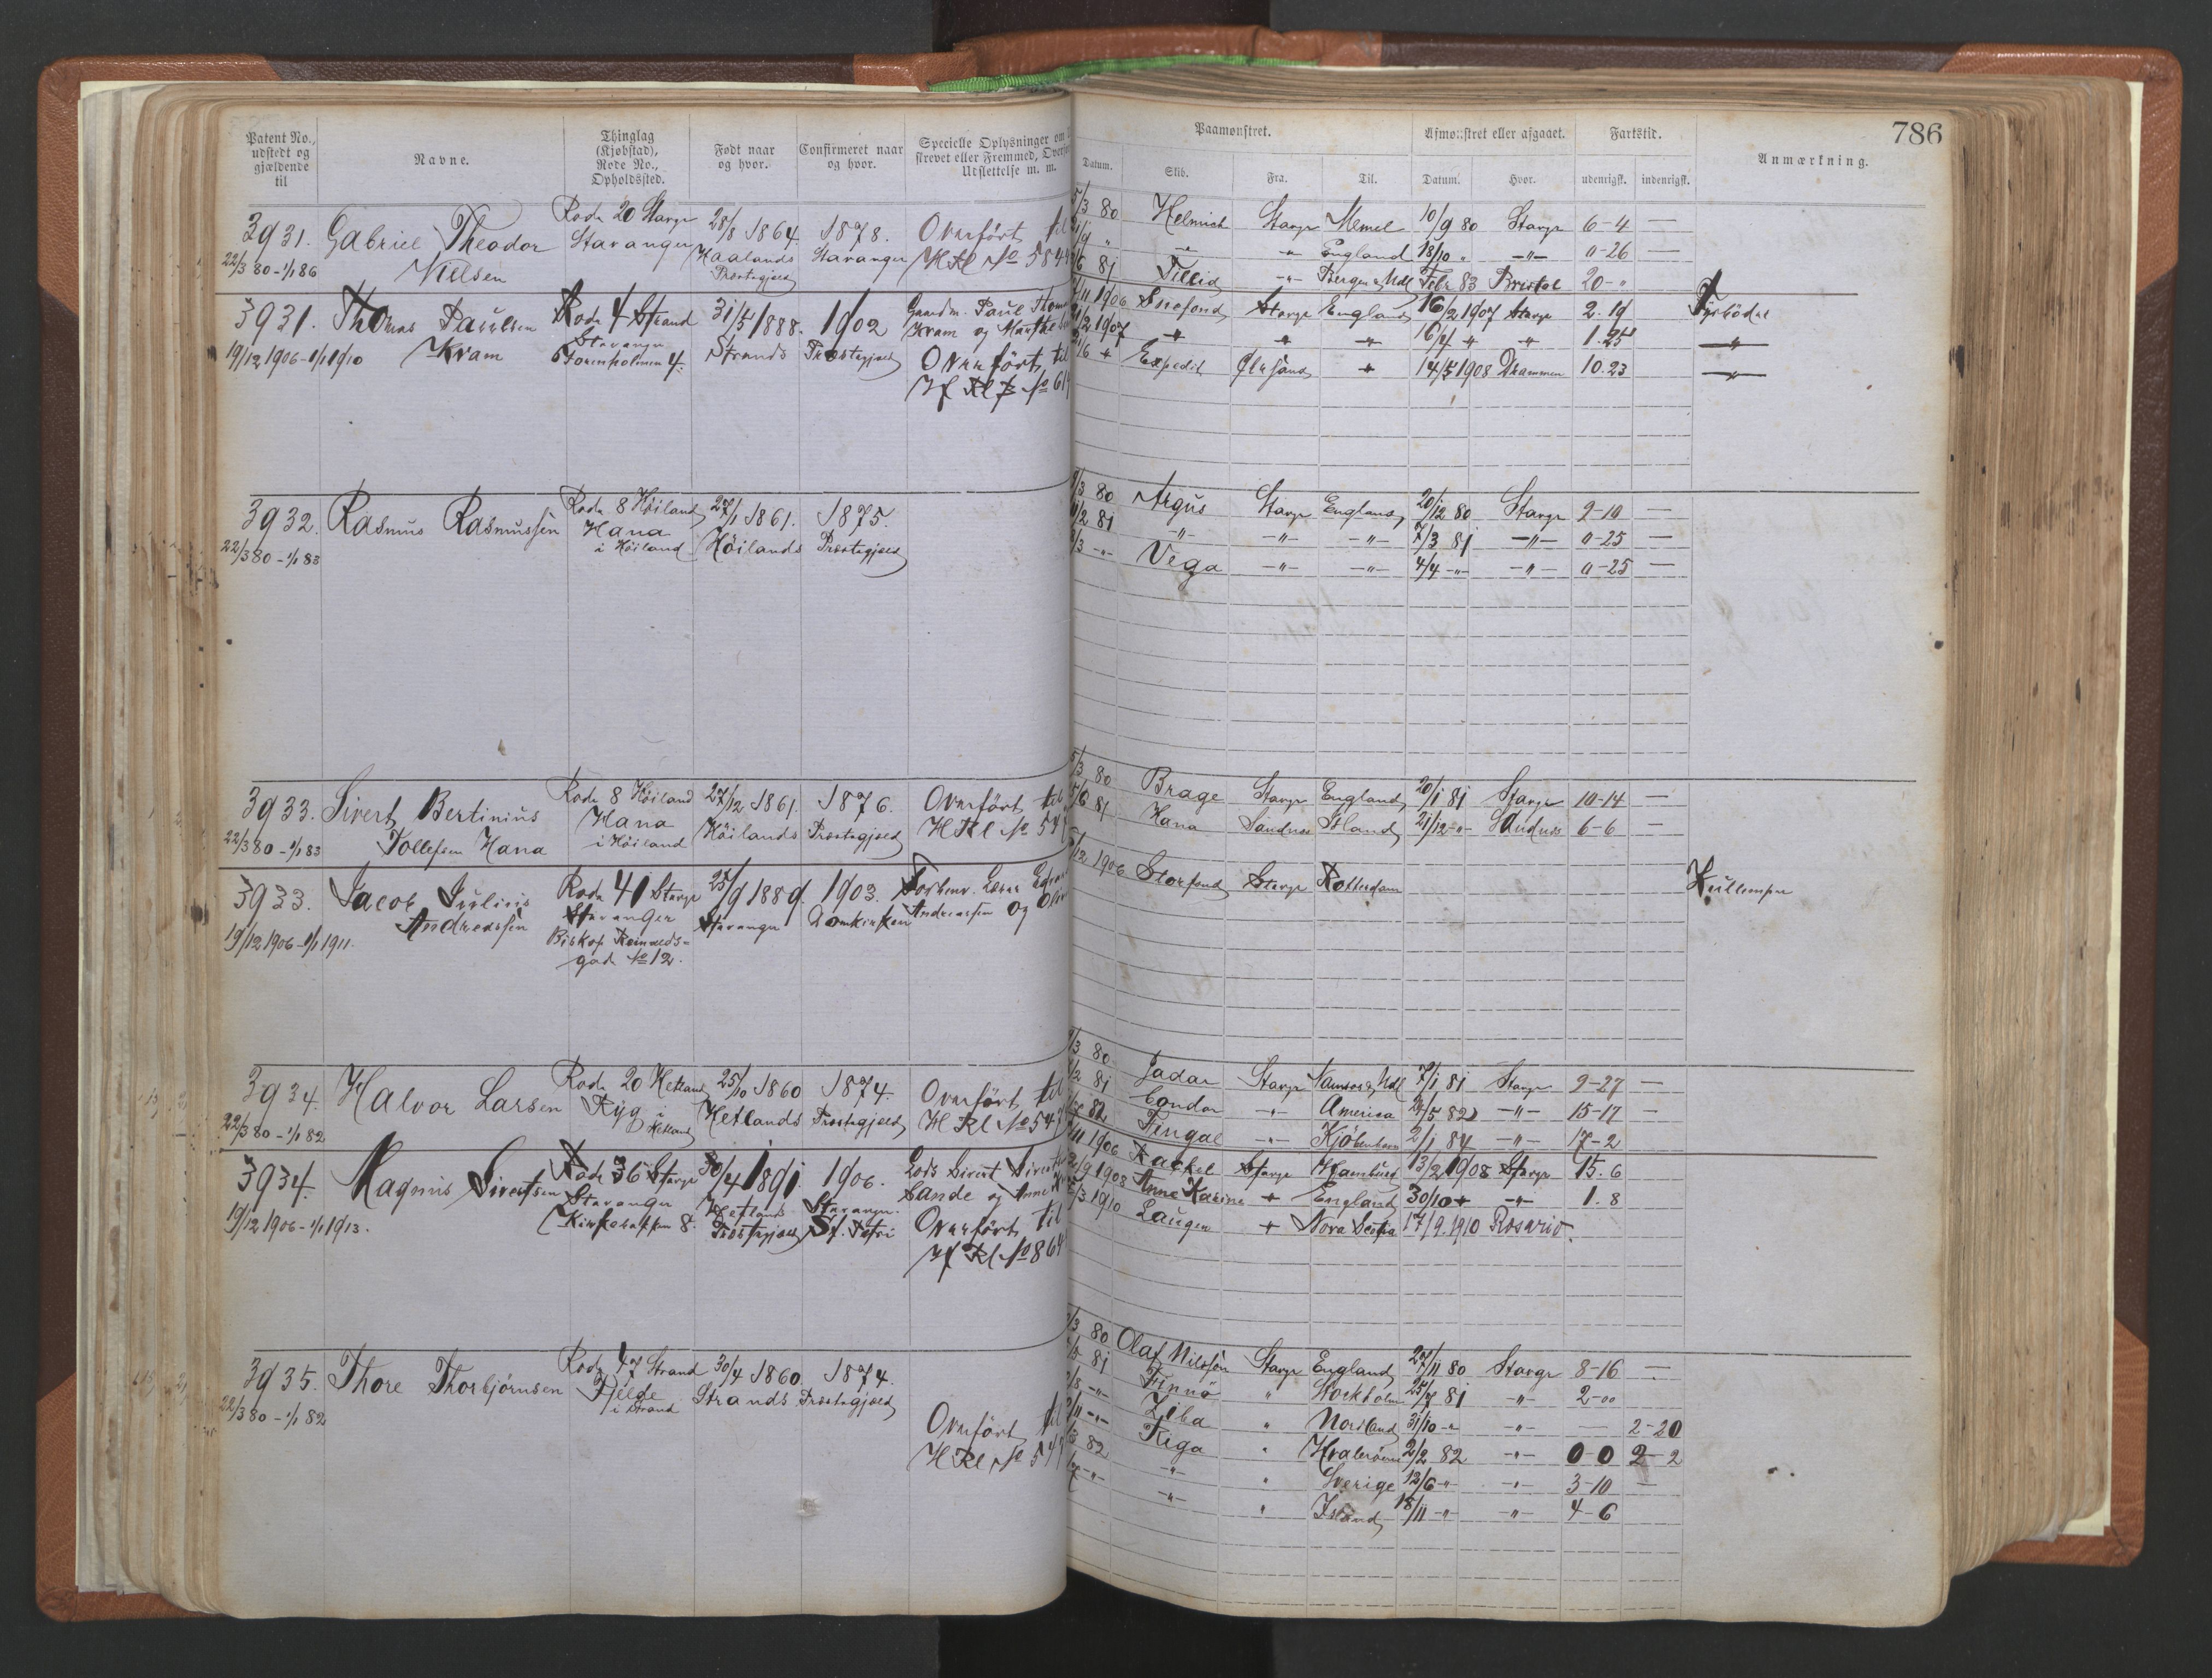 Patent No., udstedt og gjældende til
Navne.
Thinglag (Kjøbstad), Rode No., Opholdssted.
Født naar og hvor.
Confirmeret naar og hvor.
Specielle Oplysninger om
skrevet eller Fremmed,
Udslettelse m. m.
Paamønstret.
Afmønstret eller afgaaet.
Fartstid.
786
Datum. Skib. Fra. Til. Datum. Hvor. udenrigsk. indenrigsk. Anmærkning.
3931. Gabriel Theodor Nielsen
22/3 80 - 1/1 86
Rode 20 Stavgr
Stavanger
28/8 1864.
Haalands Præstegjeld
1878.
Stavanger
Overført til
H Rl No 584
5/3 80 Helmich Stavgr Memel 10/9 80 Stavgr 6-4 —
" -"- -"- England 18/10 " -"- "-26 —
6 81 Tillid -"- Bergen & Mdl Febr 83 Bristol 20-"
3931. Thomas Paulsen Kram
19/12 1906 - 1/1 1910
Rode 4 Strand
Stavanger
Steenholmen 4.
31/5 1888.
Strands
1902
Præstegjeld
Gaardm. Paul
Kram og Marthe
Overført til
H Rl No 61
11 1906 Snefond Stavgr England 16/2 1907 Stavgr 2.19 Fyrbøder
2 1907 " " " 16/4 " " 1.25 "
6 " Expedit " 14/5 1908 Drammen 10.23 "
3932. Rasmus Rasmussen
22/3 80 - 1/1 83
Rode 8 Høiland
Hana
i Høiland
27/1 1861.
Høilands
1875.
Præstegjeld
/3 80 Argus Stavgr England 20/12 80 Stavgr 9-10 —
/2 81 -"- -"- -"- 7/3 81 -"- "-25 —
/3 -"- Vega -"- -"- 4/4 -"- -"- "-25 —
3933. Sivert Bertinius Tollefsen Hana
22/3 80 - 1/1 83
Rode 8 Høiland
Hana
i Høiland
27/12 1861.
Høilands
1876.
Præstegjeld
Overført til
H Rl No 54
5/3 80 Brage Stavgr England 20/1 81 Stavgr 10-14 —
/6 81 Hana Sandnes Island 21/12 -"- Sandnes 6-6 —
3933. Jacob Julius Andreassen
19/12 1906 - 1/1 1911.
Rode 41 Stavgr
Stavanger
Biskop Reinalds-
gade No 12.
25/9 1889.
Stavanger
1903.
Domkirken
Andreassen og
/12 1906 Storfond Stavgr Rotterdam Kullemper
3934. Halvor Larsen
22/3 80 - 1/1 82
Rode 20 Hetland
Ryg i Hetland
25/10 1860
Hetlands
1874.
Præstegjeld
Overført til
H Rl No 54
/3 80 Jadar Stavgr Namsos & Mdl 7/1 81 Stavgr 9-27 —
/2 81 Condor -"- America /5 82 -"- 15-17 —
82 Fingal -"- Kjøbenhavn 2/1 84 -"- 17-2
3934. Magnus Sivertsen
19/12 1906 - 1/1 1913.
Rode 36 Stavgr
Stavanger
Kirkebakken 8.
30/4 1891.
Hetlands
Præstegjeld
1906.
Stavanger
St. Petri
Lods Sivert
Sande og Anne
Overført til
H Rl No 864
11 1906 Rachel Stavgr Hamburg 13/2 1908 Stavgr 15.6
/9 1908 Anne Karine " England 30/10 " " 1.8
/3 1910 Laugen " Nova Scotia 17/9 1910 Rosario.
3935. Thore Thorbjørnsen
22/3 80 - 1/1 82
Rode 47 Strand
Fjelde
i Strand
30/4 1860.
Strands
1874.
Præstegjeld
Overført til
H Rl No 54
/3 80 Olaf Nilssen Stavgr England 27/11 80 Stavgr 8-16 —
/5 81 Finnø " Stockholm 25/7 81 -"- 2-00
/8 -"- Ziba " Nordland 31/10 -"- -"- — 2-20
/11 -"- Riga " 2/2 82 -"- 0-0 2-2
82 -"- " Sverige 12/6 -"- -"- 3-10 —
-"- -"- " Island 18/11 -"- -"- 4-6